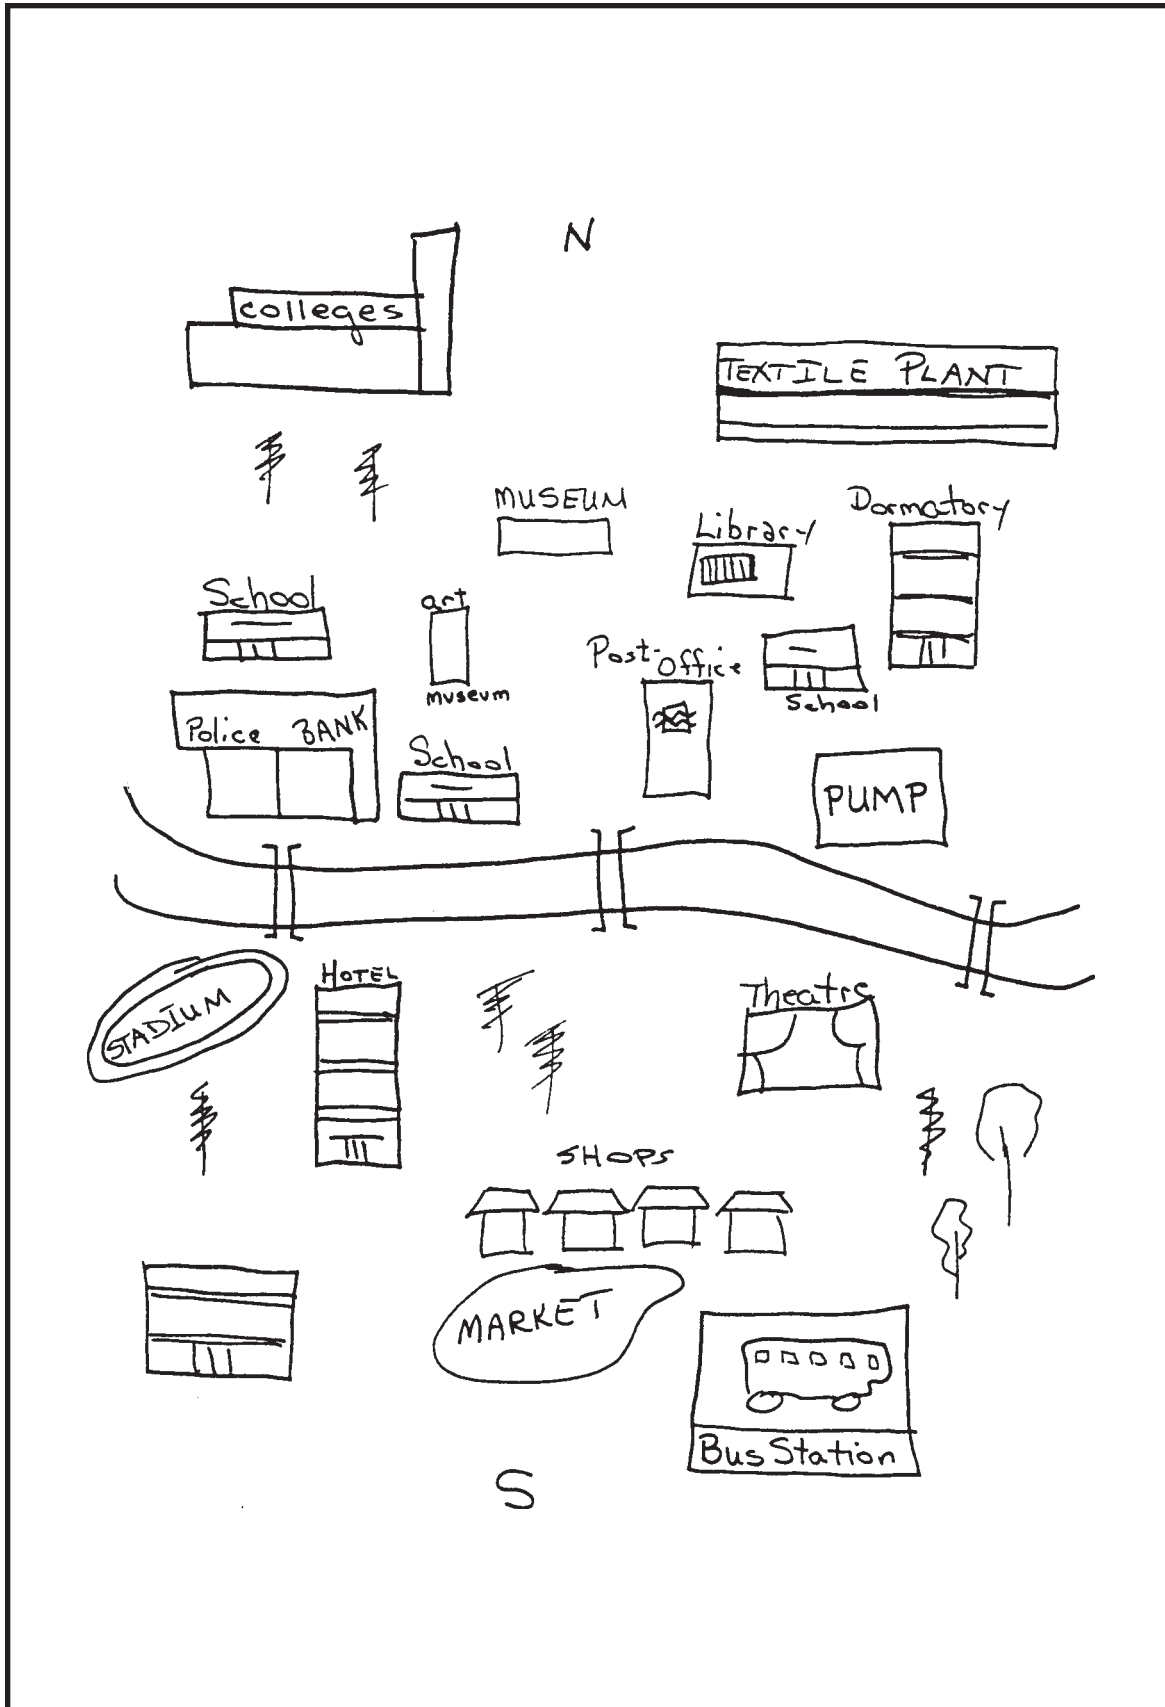 N
colleges
TEXTILE PLANT
MUSEUM
Library
Dormatory
School
art
museum
Post-Office
School
Police BANK
School
PUMP
STADIUM
HOTEL
Theatre
SHOPS
MARKET
Bus Station
S